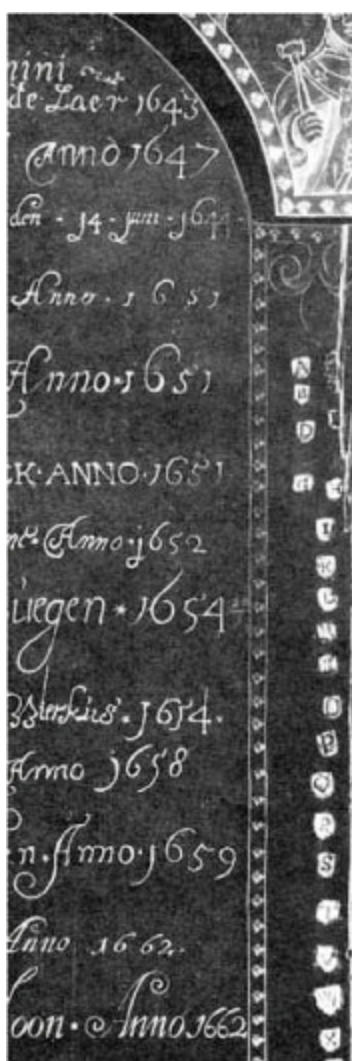 de Laer 1643
Anno 1647
den · 14 · juni · 1644
Anno · 1651
Anno · 1651
CK · ANNO · 1651
Anno · 1652
uegen * 1654
1654 ·
Anno 1658
n · Anno · 1659
Anno 1662 ·
oon · Anno 1662
A
B
D
I
K
L
M
N
O
P
Q
R
S
T
V
W
X